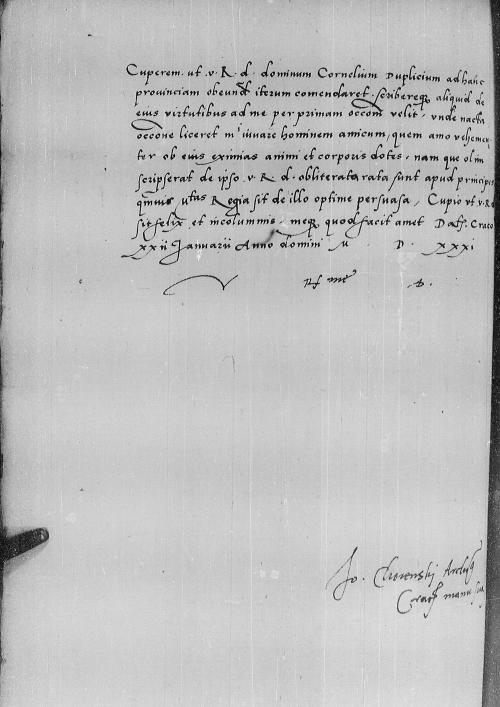 Cuperem. ut. v. R. d. dominum Cornelium Duplicium ad hanc
provinciam obeund iterum comendaret. scriberetq aliquid de
eius virtutibus ad me per primam occom velit. unde nacta
occone liceret mi iuvare hominem amicum, quem amo vehemen
ter ob eius eximias animi et corporis dotes. nam que olim
scripserat de ipso v. R. d. obliterata sunt apud principes
qmvis Mtas Regia sit de illo optime persuasa, Cupio ut v. R. d
sit felix et incolummis. meq quod facit amet Datf. Craco
xxii Januarii Anno domini M D. xxxi
Rf me d.
Jo. Choienskij Archid
Crac manu